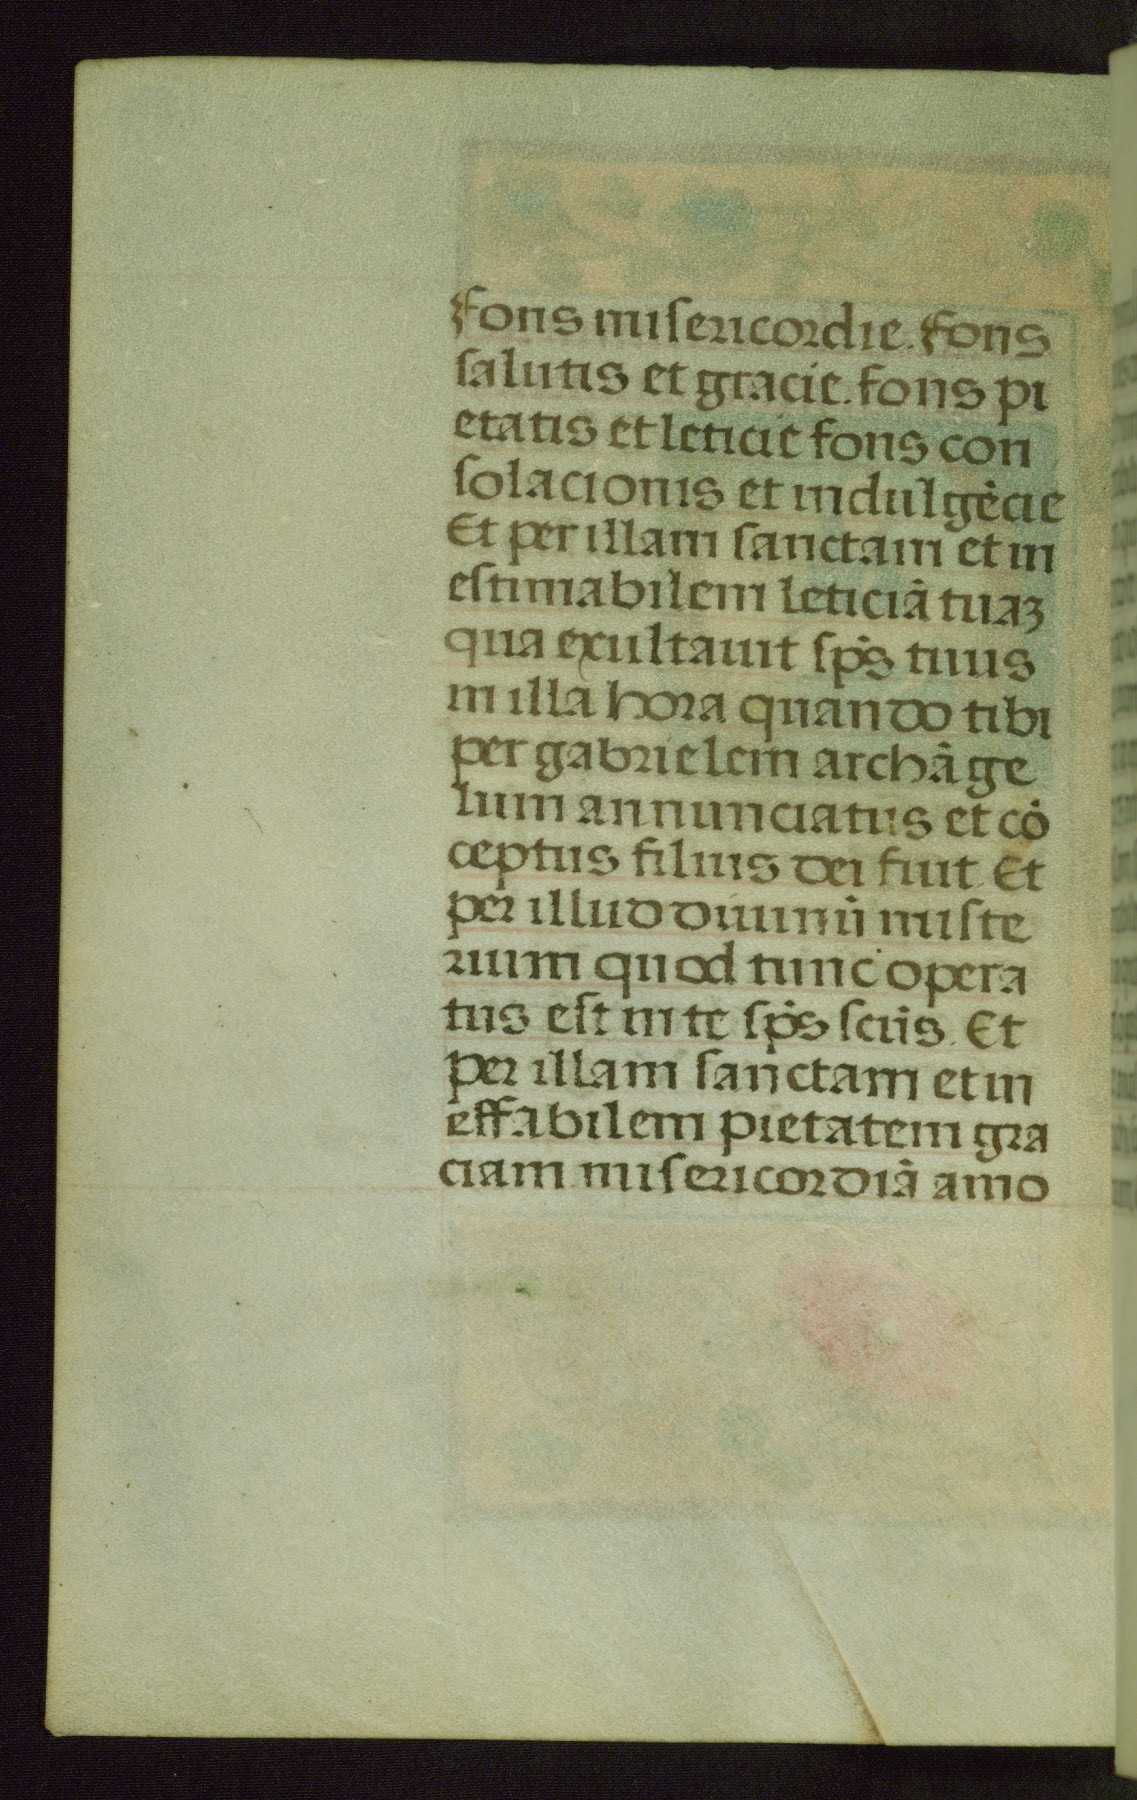 Fons misericordie. Fons
salutis et gracie. fons pi
etatis et leticie fons con
solacionis et indulgēcie
Et per illam sanctam et in
estimabilem leticiā tuaꝫ
qua exultauit sp̄s tuus
in illa hora quando tibi
per gabrielem archāge
lum annunciatus et cō
ceptus filius dei fuit. Et
per illud diuinū miste
rium quod tunc opera
tus est in te sp̄s sctūs. Et
per illam sanctam et in
effabilem pietatem gra
ciam misericordiā amo